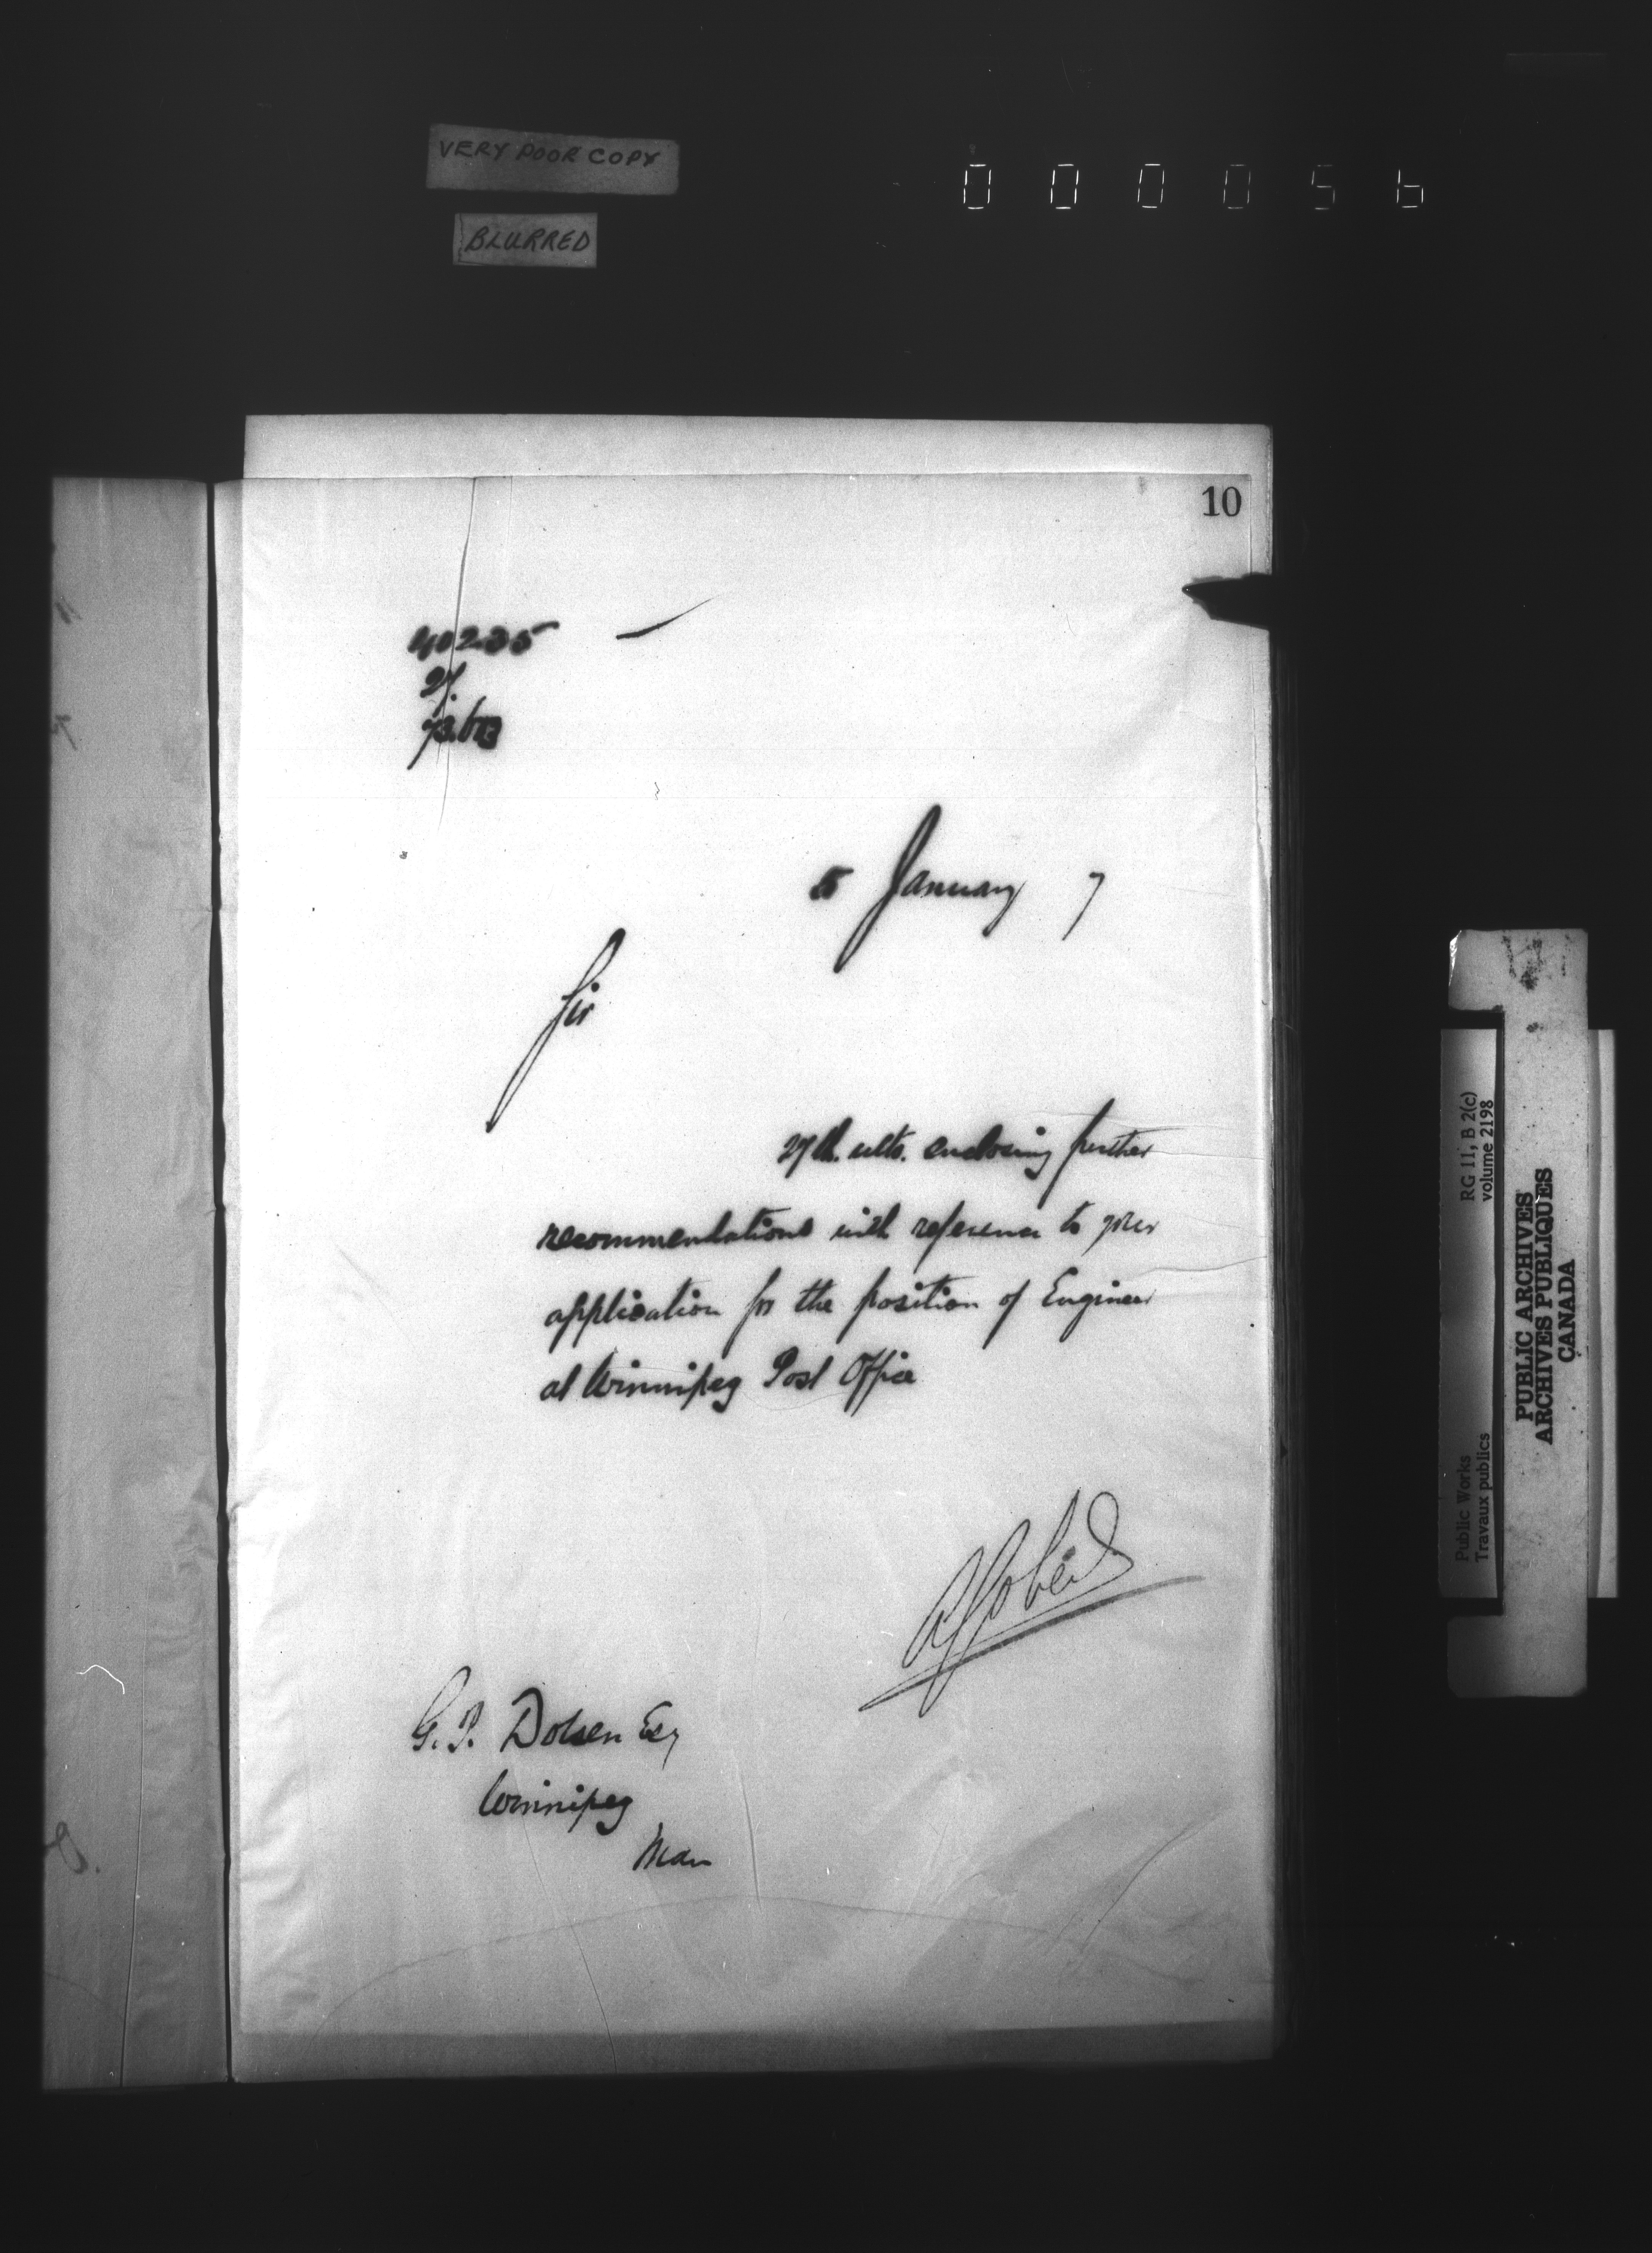 VERY POOR COPY
BLURRED
000056
10
40235
5 January 7
Sir
27th. ulto. enclosing further
recommendations with reference to your
application for the position of Engineer
at Winnipeg Post Office
AGobeil
G. P. Dolsen Esq
Winnipeg
Man
Public Works
Travaux publics
RG 11, B 2(c)
volume 2198
PUBLIC ARCHIVES
ARCHIVES PUBLIQUES
CANADA